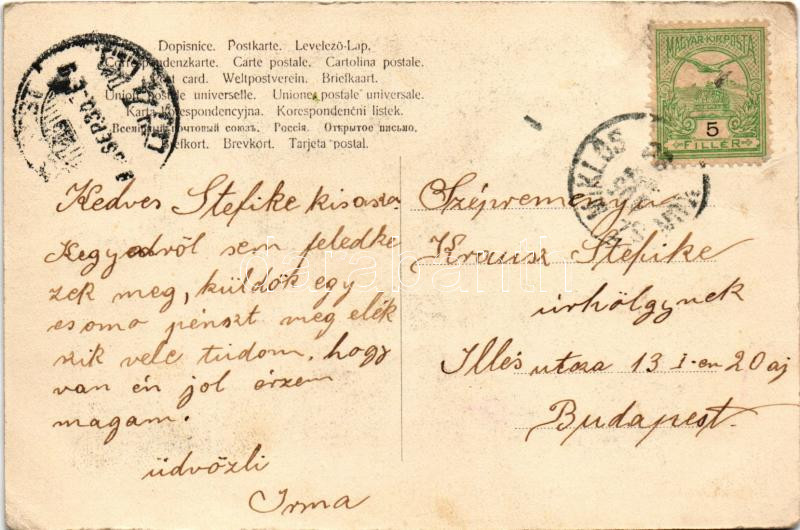 Dopisnice. Postkarte. Levelező-Lap.
Correspondenzkarte. Carte postale. Cartolina postale.
Post card. Weltpostverein. Briefkaart.
Union postale universelle. Unione postale universale.
Karta korespondencyjna. Korespondenční lístek.
Всемірный почтовый союзъ. Россія. Открытое письмо.
Brefkort. Brevkort. Tarjeta postal.
MAGYAR·KIR·POSTA
5
FILLÉR
Kedves Stefike kisasz.
Kegyedről sem feledke
zek meg, küldök egy
csomo pénszt meg elék
szik vele tudom, hogy
van én jol érzem
magam.
üdvözli
Irma
Szépreményü
Krausz Stefike
úrhölgynek
Illés utsza 13 I-en 20 aj
Budapest.
MIKLÓS
SEP 30
darabanth